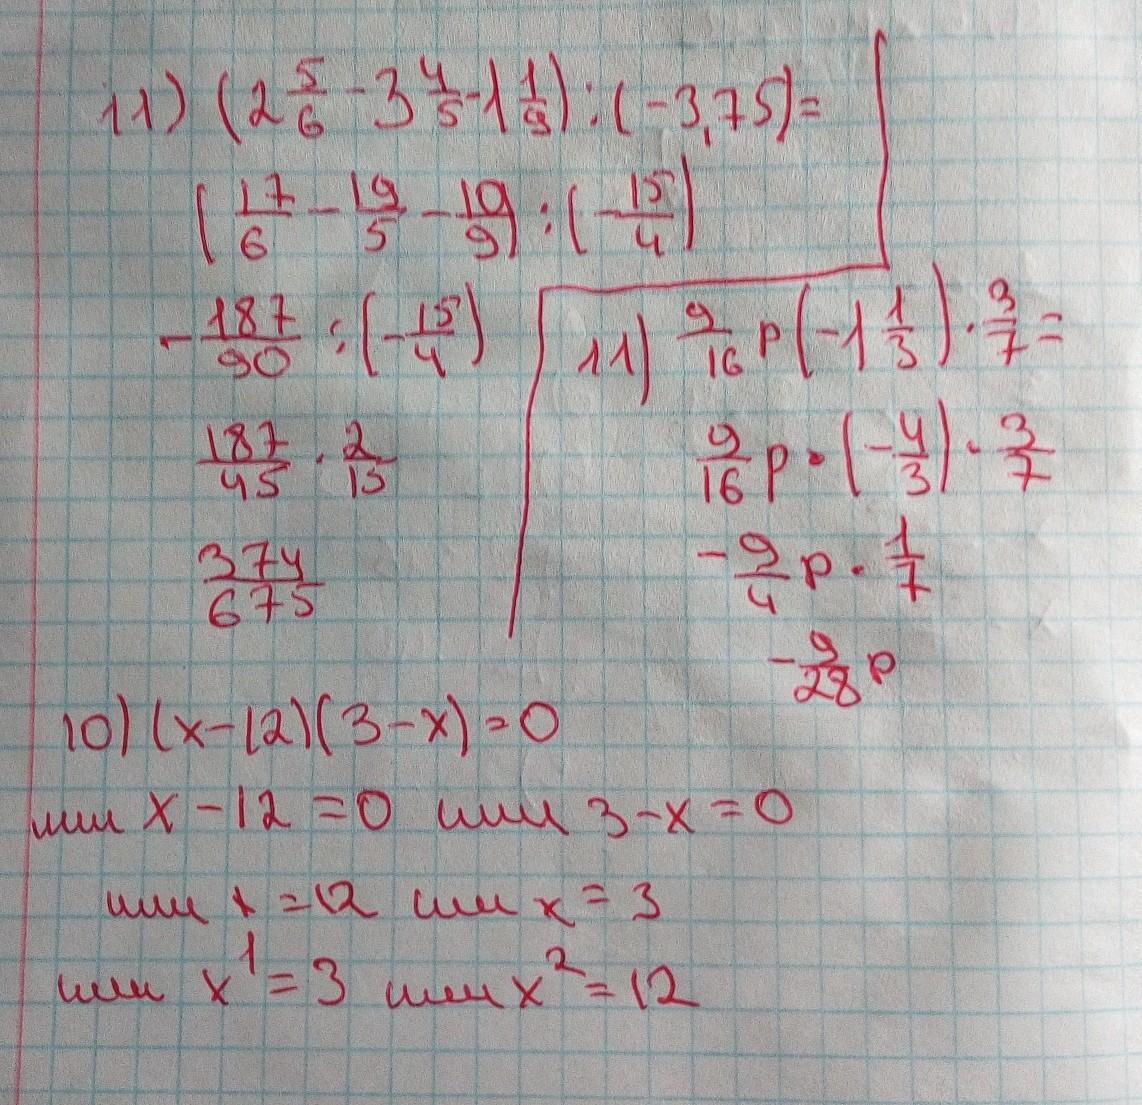 11) (2 5/6 - 3 4/5 - 1 1/9) : (-3,75) =
(17/6 - 19/5 - 10/9) : (-15/4)
-187/90 : (-15/4)
187/45 · 2/15
374/675
11) 9/16 p (-1 1/3) · 3/7 =
9/16 p · (-4/3) · 3/7
-9/4 p · 1/7
-9/28 p
10) (x-12)(3-x)=0
или x-12=0 или 3-x=0
или x=12 или x=3
или x¹=3 или x²=12